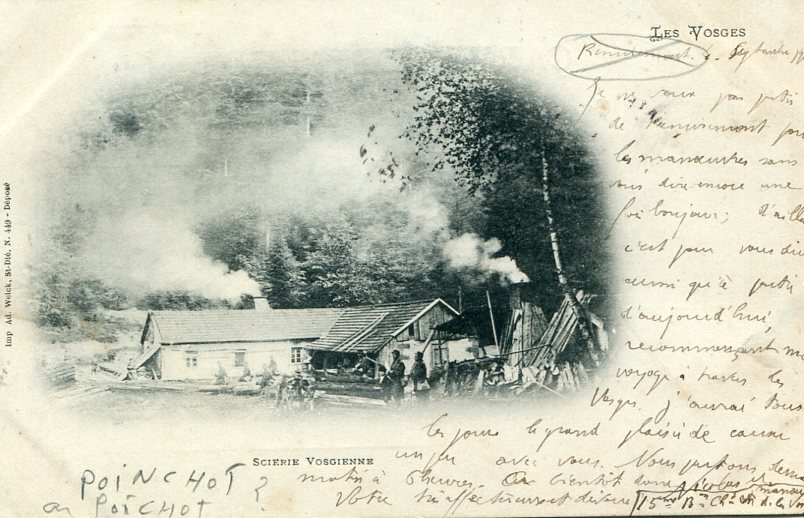 LES VOSGES
Remiremont. Septembre
Je ne veux pas partir
de Remiremont pour
les manœuvres sans
vous dire encore une
fois bonjour; d'ailleurs
c'est pour vous dire
aussi qu'à partir
d'aujourd'hui
recommençant
voyage à travers les
Vosges. J'aurai tous
les jours le grand plaisir de causer
un peu avec vous. Nous partons demain
matin à 6 heures. à bientôt donc
Votre très affectueusement
15me Bon
SCIERIE VOSGIENNE
POINCHOT ?
ou POTCHOT
Imp Ad. Weick, St-Dié, N. 449 - Déposé